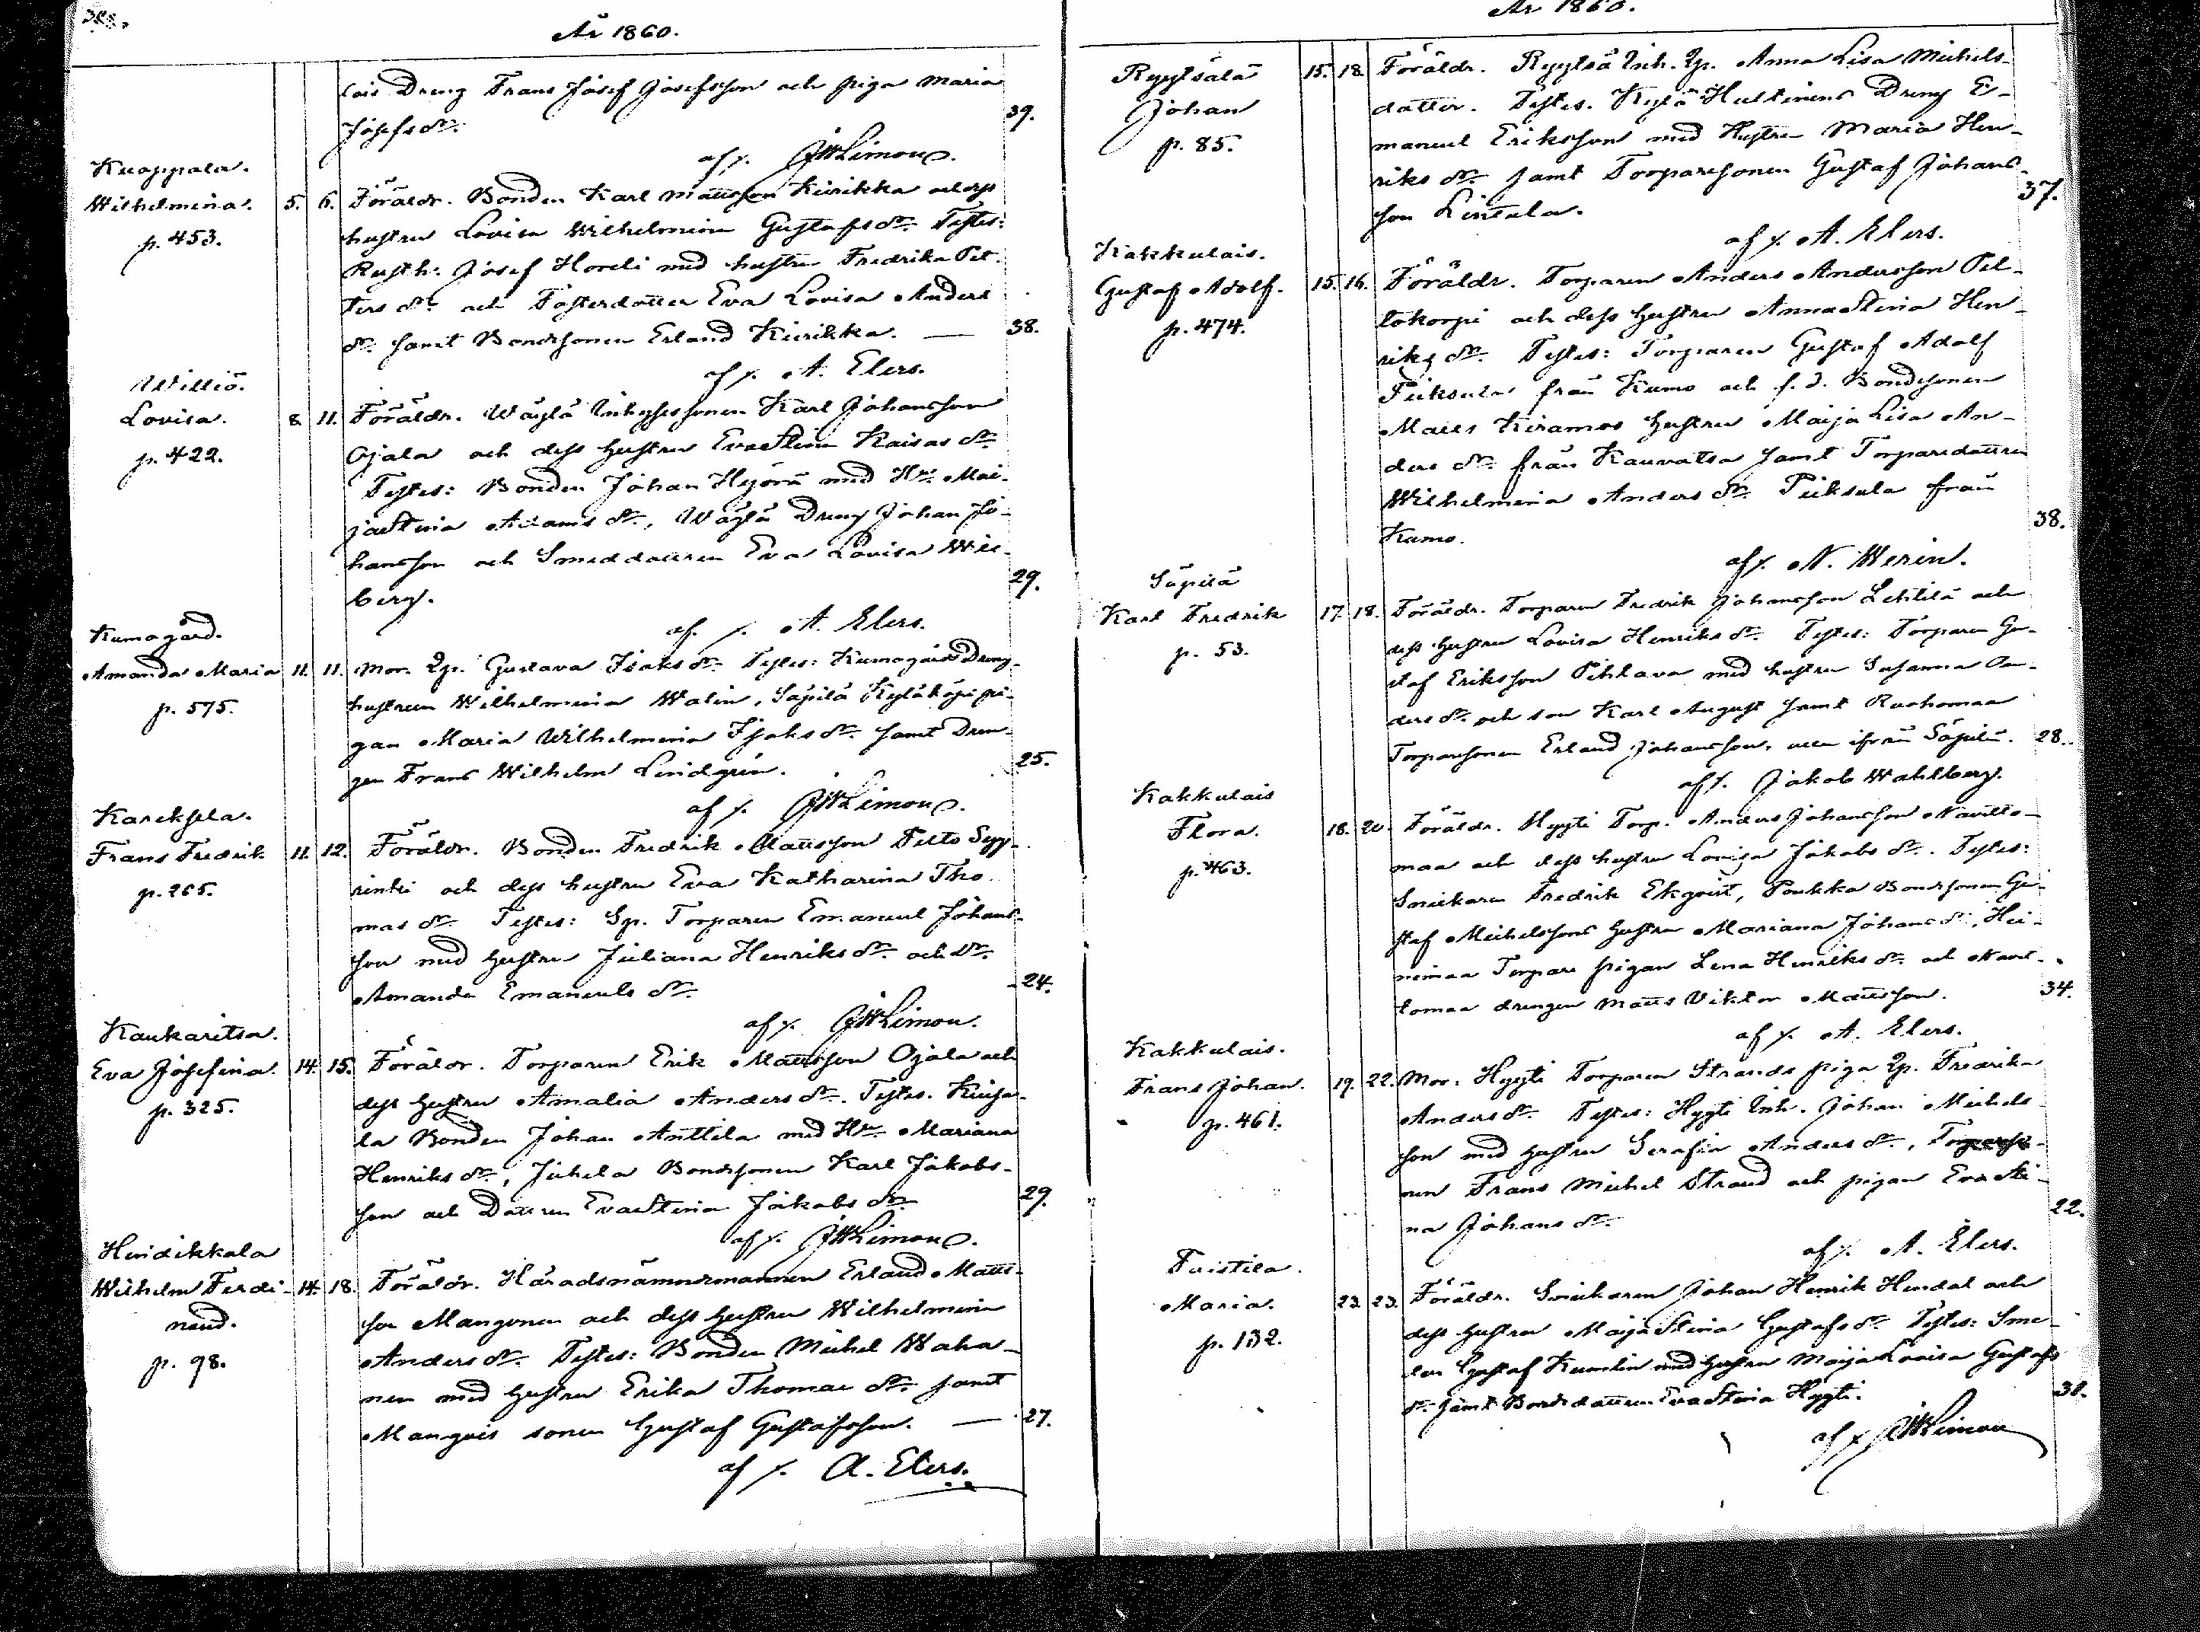 År 1860.
Dreng Frans Josef Josefsson och piga Maria
Josefsdr. 39.
af /.
Kuoppala.
Wilhelmina. 5. 6. Föräldr. Bonden Karl Mattsson Kiirikka och dess
p. 453. hustru Lovisa Wilhelmina Gustafs dr. Testes:
Rusth: Josef Horeli med hustru Fredrika Pet-
ters dr. och Fosterdotter Eva Lovisa Anders
dr. samt Bondesonen Erland Kiirikka. — 38.
af /. A. Elers.
Williö.
Lovisa. 8. 11. Föräldr. Wäylä Inhysessonen Karl Johansson
p. 422. Ojala och dess hustru Eva Stina Kaisas dr.
Testes: Bonden Johan Hyörä med Hru. Mai-
ja Stina Adams dr., Wäylä Dreng Johan Jo-
hansson och Smeddottren Eva Lovisa Wi-
berg. 29.
af. /. A. Elers.
Kumogård.
Amanda Maria 11. 11. Mor. Qp. Gustava Isaks dr. Testes: Kumogårds Dreng-
p. 575. hustrun Wilhelmina Walin, Säpilä pi-
gan Maria Wilhelmina Isaks dr. samt Dren-
gen Frans Wilhelm Lindgrén. 25.
af /.
Kareksela.
Frans Fredrik 11. 12. Föräldr. Bonden Fredrik Mattsson Pelto Sepp-
p. 265. och dess hustru Eva Katharina Tho-
mas dr. Testes: Sp. Torparen Emanuel Johans-
son med hustru Juliana Henriks dr. och dr.
Amanda Emanuels dr. 24.
af /.
Kaukaritsa.
Eva Josefina. 14. 15. Föräldr. Torparen Erik Mattsson Ojala och
p. 325. dess hustru Amalia Anders dr. Testes.
la Bonden Johan Anttila med Hru. Mariana
Henriks dr., Juhela Bondesonen Karl Jakobs-
son och Dottren Eva Stina Jakobs dr. 29.
af /.
Heinikkala
Wilhelm Ferdi- 14. 18. Föräldr. Häradsnämndemannen Erland Matts-
nand. son Mangonen och dess hustru Wilhelmina
p. 98. Anders dr. Testes: Bonden Michel Waha-
nen med hustru Erika Thomae dr. samt
sonen Gustaf Gustafsson. — 27.
af /. A. Elers.
År 1860.
Ryytsälä 15. 18. Föräldr. Ryytsä Inh. Qp. Anna Lisa Michels-
Johan dotter. Testes. Kylä Dreng E-
p. 85. manuel Eriksson med Hustru Maria Hen-
riks dr. samt Torparesonen Gustaf Johans-
son Lintala. 37.
af /. A. Elers.
Kakkulais.
Gustaf Adolf. 15. 16. Föräldr. Torparen Anders Andersson Pel-
p. 474. tokorpi och dess hustru Anna Stina Hen-
riks dr. Testes: Torparen Gustaf Adolf
Piiksula från Kumo och f. d. Bondesonen
Matts Kiramos hustru Maija Lisa An-
ders dr. från Kauvatsa samt Torparedottren
Wilhelmina Anders dr. Piiksula från
Kumo. 38.
af /. N. Werin.
Säpilä
Karl Fredrik 17. 18. Föräldr. Torparen Fredrik Johansson Lehtilä och
p. 53. dess hustru Lovisa Henriks dr. Testes: Torparen Gu-
staf Eriksson Pihlava med hustru Susanna An-
ders dr. och son Karl August samt Ruohomaa
Torparesonen Erland Johansson, ifrån Säpilä. 28.
af /. Jakob Wahlberg.
Kakkulais
Flora. 18. 20. Föräldr. Hyyti Torp. Anders Johansson Navetto-
p. 463. maa och dess hustru Lovisa Jakobs dr. Testes:
Snickaren Fredrik Ekqvist, Paukka Bondesonen Gu-
staf Michelssons hustru Mariana Johans dr., Hei-
nimaa Torpare pigan Lena Henriks dr. och
tomaa drengen Matts Viktor Mattsson. 34.
af /. A. Elers.
Kakkulais.
Frans Johan. 19. 22. Mor: Hyyti Torparen Strands piga Qp. Fredrika
p. 461. Anders dr. Testes: Hyyti Inh. Johan Michels-
son med hustru Serafia Anders dr.,
nen Frans Michel Strand och pigan Eva Sti-
na Johans dr. 22.
af /. A. Elers.
Tuistila.
Maria. 23. 23. Föräldr. Snickaren Johan Henrik Hendal och
p. 132. dess hustru Maija Stina Gustafs dr. Testes: Sme-
den Gustaf Kumlin med hustru Maija Lovisa Gustafs
dr. samt Bondedottren Eva Stina Hyyti. 31.
af /.